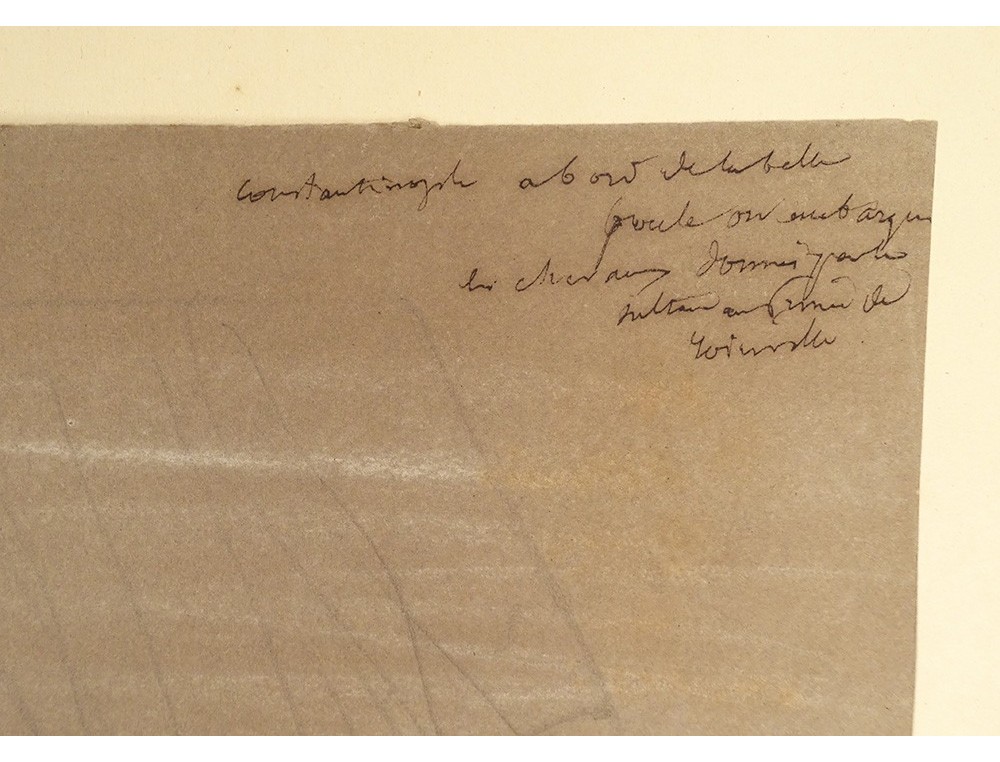 Constantinople a bord de la belle
poule on embarque
les chevaux donnés par le
sultan au Prince de
Joinville